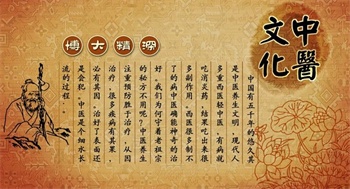 中醫
文化
博大精深
中国有五千年的悠久其
是中医养生文明，现代人
多重西医轻中医，有病就
吃消炎药，结果吃出来很
多副作用。西医很多制不
了的病中医确能神奇的治
好。我们为何守着老祖宗
的秘方不用呢？中医养生
注重预防胜于治疗，从因
治疗，很多疾病有其果，
必有其因，治好了表面还
是会犯，中医是个细水长
流的过程。